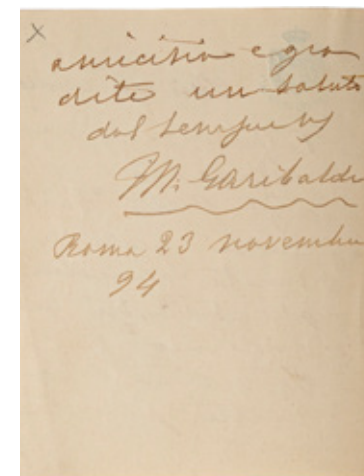 amicizia e gra
dite un saluto
dal sempre vs
M. Garibaldi
Roma 23 novembre
94